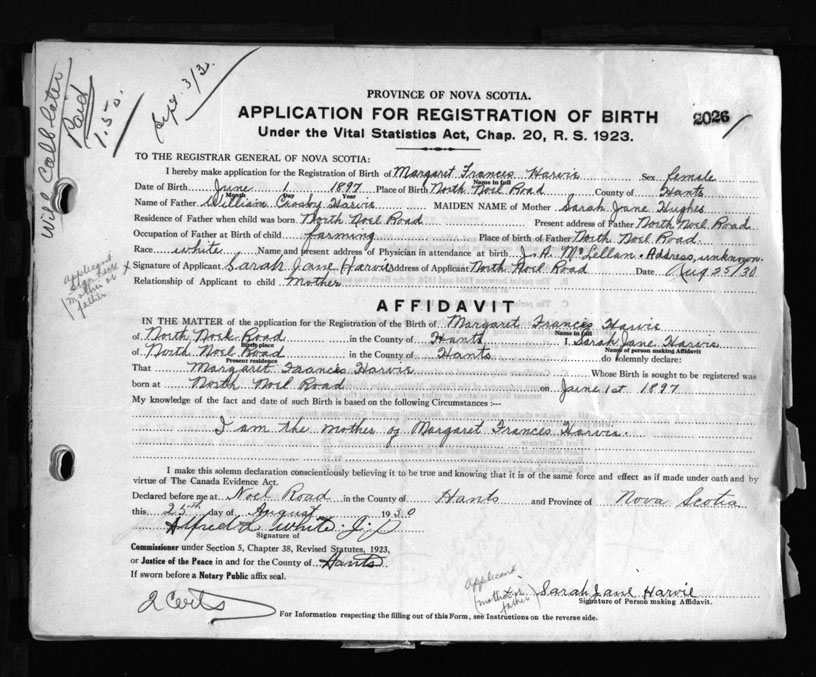 Will Call later
Paid
1.50
Sept. 3/30
PROVINCE OF NOVA SCOTIA.
APPLICATION FOR REGISTRATION OF BIRTH
2026
Under the Vital Statistics Act, Chap. 20, R. S. 1923.
TO THE REGISTRAR GENERAL OF NOVA SCOTIA:
I hereby make application for the Registration of Birth of Margaret Frances Harvie Sex female
Name in full
Date of Birth June 1 1897 Place of Birth North Noel Road County of Hants
Month Day Year
Name of Father William Crosby Harvie MAIDEN NAME of Mother Sarah Jane Hughes
Residence of Father when child was born North Noel Road Present address of Father North Noel Road
Occupation of Father at Birth of child farming Place of birth of Father North Noel Road
Race white Name and present address of Physician in attendance at birth J. A. McLellan. Address, unknown.
applicand sign here (mother or father
x Signature of Applicant Sarah Jane Harvie Address of Applicant North Noel Road Date Aug 25/30
Relationship of Applicant to child Mother
AFFIDAVIT
IN THE MATTER of the application for the Registration of the Birth of Margaret Francis Harvie
Name in full
of North Noel Road in the County of Hants I, Sarah Jane Harvie
Birth place Name of person making Affidavit
of North Noel Road in the County of Hants do solemnly declare:
Present residence
That Margaret Frances Harvie Whose Birth is sought to be registered was
born at North Noel Road on June 1st 1897
My knowledge of the fact and date of such Birth is based on the following Circumstances :—
I am the mother of Margaret Frances Harvie.
I make this solemn declaration conscientiously believing it to be true and knowing that it is of the same force and effect as if made under oath and by
virtue of The Canada Evidence Act.
Declared before me at Noel Road in the County of Hants and Province of Nova Scotia
this 25th day of August 1930
Alfred L White J.P
Signature of
Commissioner under Section 5, Chapter 38, Revised Statutes, 1923,
or Justice of the Peace in and for the County of Hants
If sworn before a Notary Public affix seal.
applicand (mother or father)
Sarah Jane Harvie
Signature of Person making Affidavit.
2 Certs
For Information respecting the filling out of this Form, see Instructions on the reverse side.